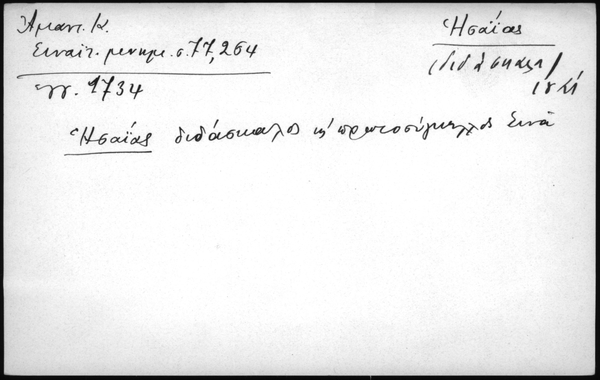 Ἀμαντ. Κ.
Σιναϊτ. μνημ. σ. 77, 254
ἔγγ. 1734
Ἡσαΐας
(διδάσκαλ)
Ἡσαΐας διδάσκαλος κ' πρωτοσύγκελλος Σινᾶ